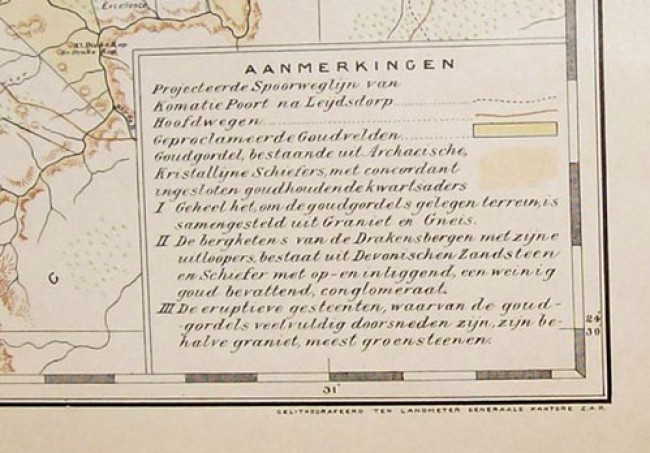 Excellence
Kl. Dicke Kop
Gr. Dicke Kop
AANMERKINGEN
Projecteerde Spoorweglijn van
Komatie Poort na Leijdsdorp
Hoofdwegen
Geproclameerde Goudvelden
Goudgordel, bestaande uit Archaeische,
Kristallijne Schiefers, met concordant
ingesloten goudhoudende kwartsaders
I Geheel het, om de goudgordels gelegen terrein, is
samengesteld uit Graniet en Gneis.
II De bergketens van de Drakensbergen met zijne
uitloopers, bestaat uit Devonischen Zandsteen
en Schiefer met op- en inliggend, een weinig
goud bevattend, conglomeraat.
III De eruptieve gesteenten, waarvan de goud-
-gordels veelvuldig doorsneden zijn, zijn be-
halve graniet, meest groensteenen.
G
24°
30
31°
GELITHOGRAFEERD TEN LANDMETER GENERAALS KANTORE Z.A.R.